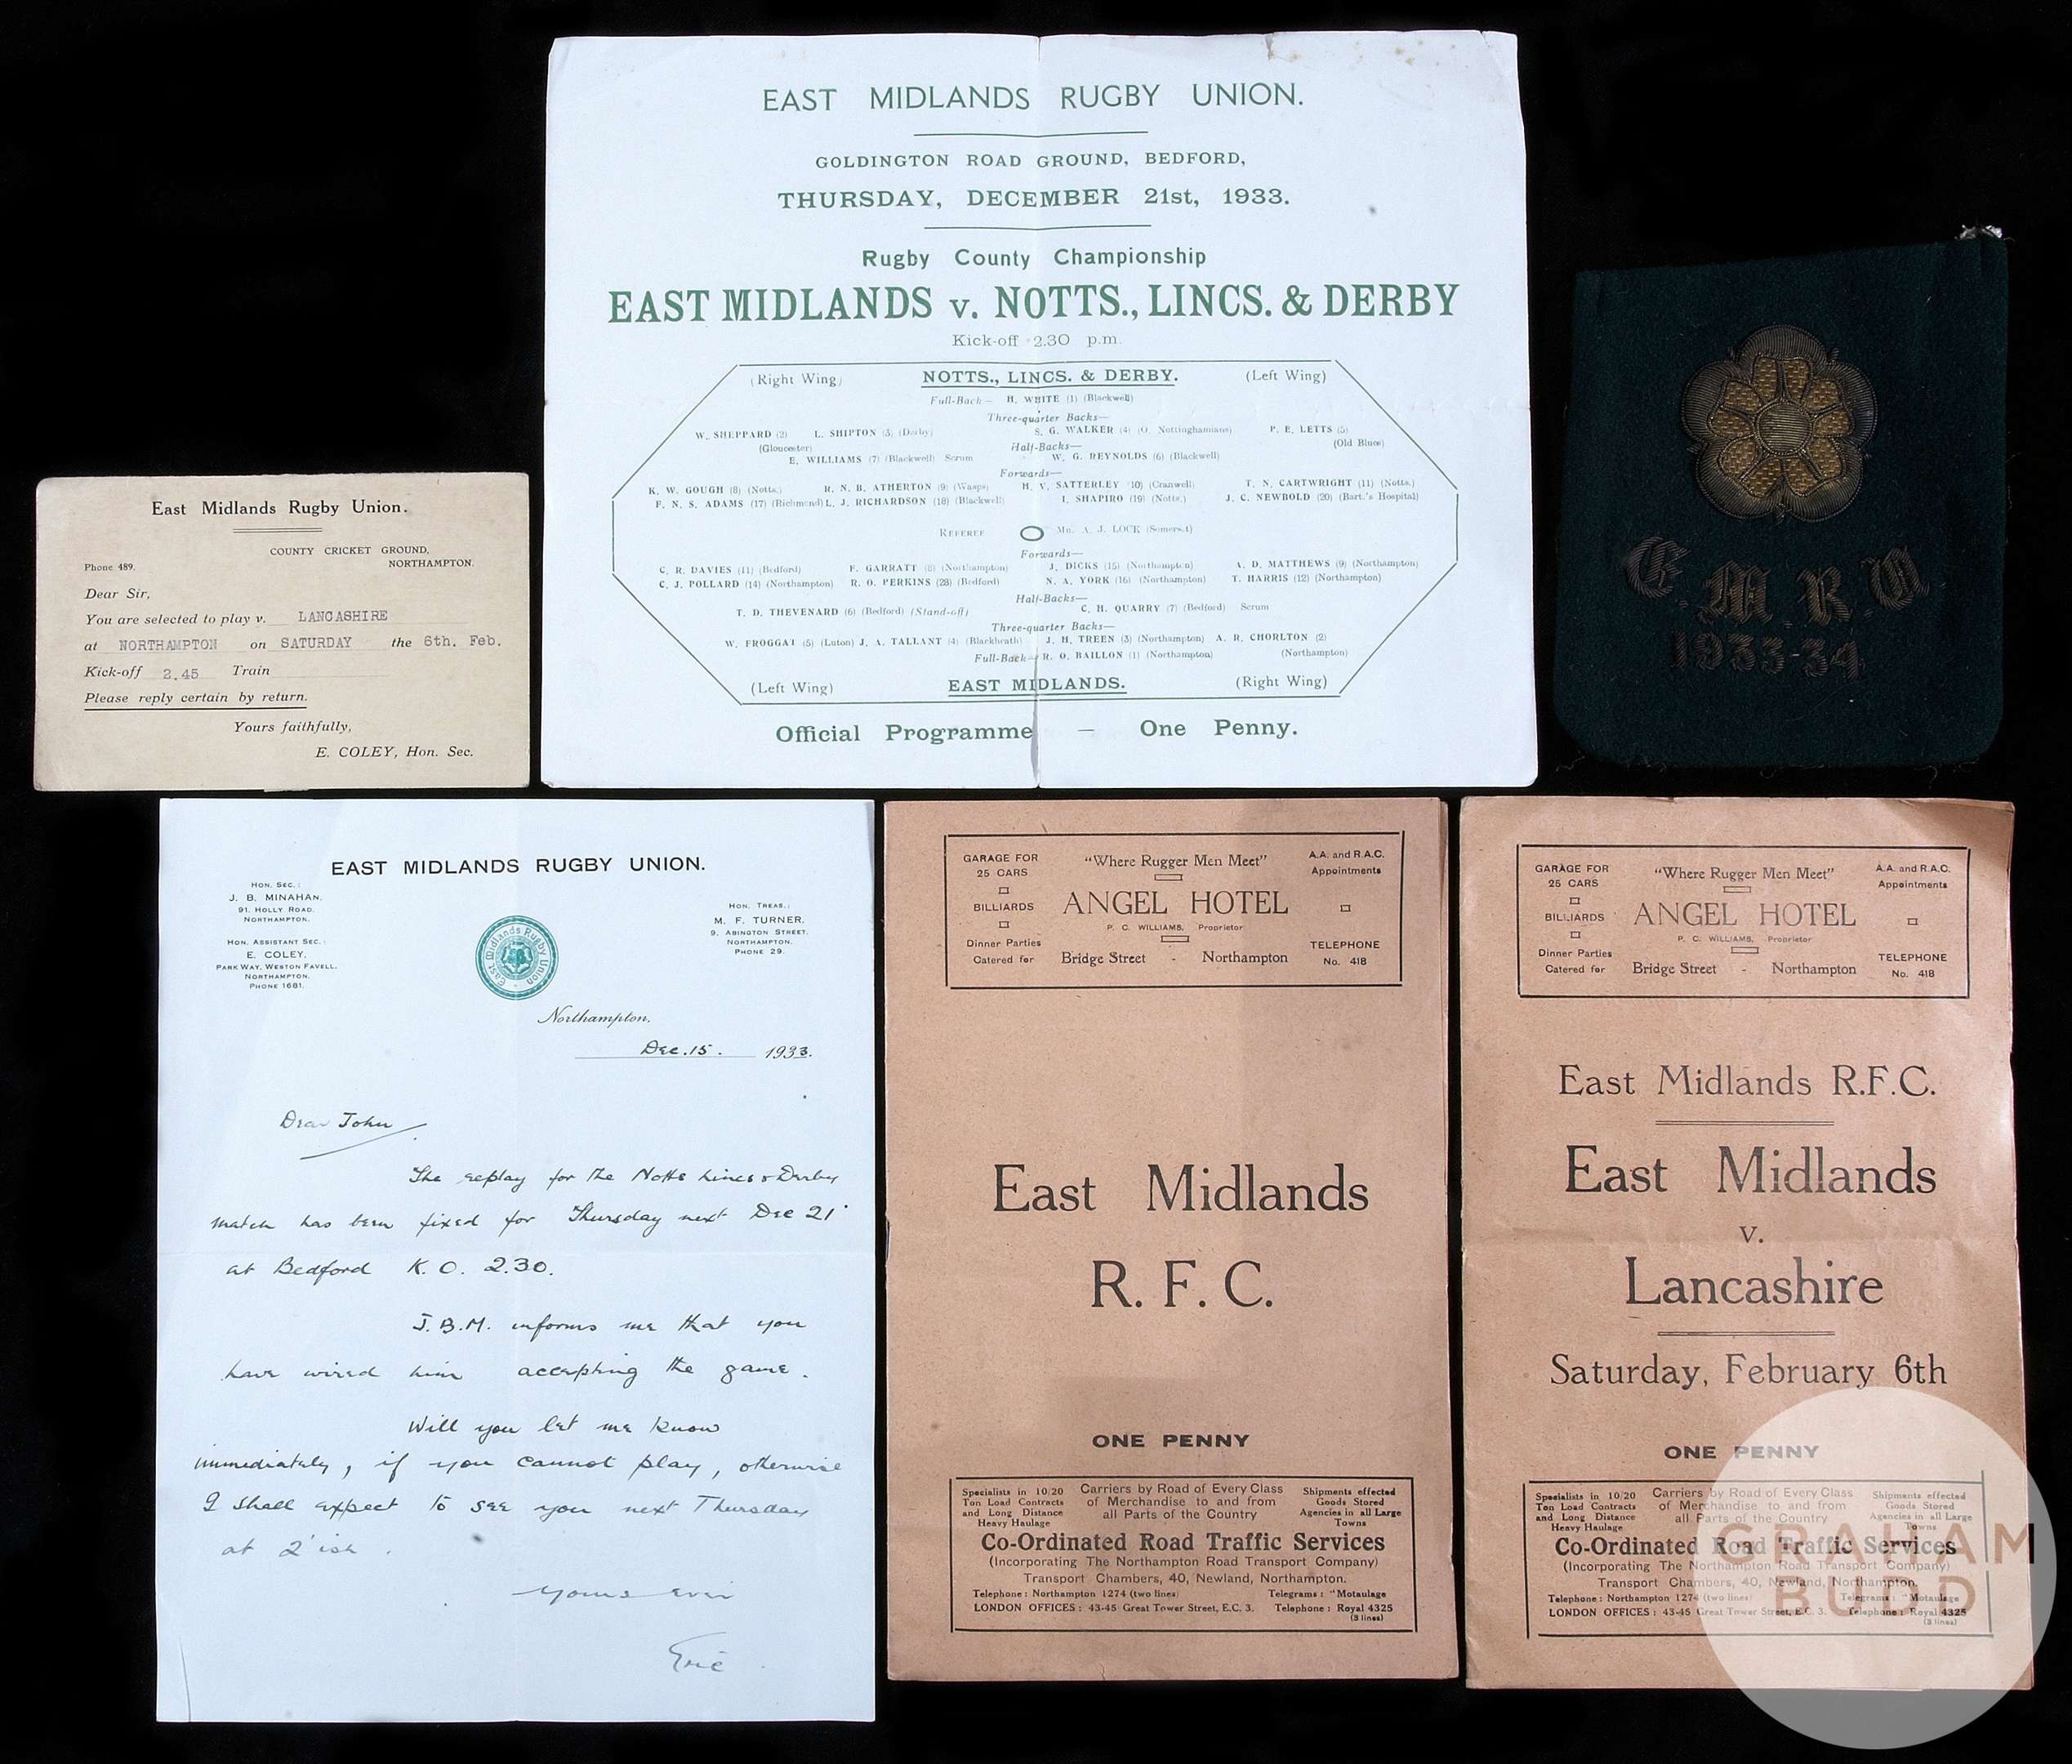 EAST MIDLANDS RUGBY UNION.
GOLDINGTON ROAD GROUND, BEDFORD,
THURSDAY, DECEMBER 21st, 1933.
Rugby County Championship
EAST MIDLANDS v. NOTTS., LINCS. & DERBY
Kick-off 2.30 p.m.
(Right Wing) NOTTS., LINCS. & DERBY. (Left Wing)
Full-Back— H. WHITE (1) (Blackwell)
Three-quarter Backs—
W. SHEPPARD (2) L. SHIPTON (3) (Derby) S. G. WALKER (4) (O. Nottinghamians) P. E. LETTS (5)
(Gloucester) Half-Backs— (Old Blues)
E. WILLIAMS (7) (Blackwell) Scrum W. G. REYNOLDS (6) (Blackwell)
Forwards—
K. W. GOUGH (8) (Notts.) R. N. B. ATHERTON (9) (Wasps) H. V. SATTERLEY (10) (Cranwell) T. N. CARTWRIGHT (11) (Notts.)
F. N. S. ADAMS (17) (Richmond) L. J. RICHARDSON (18) (Blackwell) I. SHAPIRO (19) (Notts.) J. C. NEWBOLD (20) (Bart.'s Hospital)
REFEREE MR. A. J. LOCK (Somerset)
Forwards—
C. R. DAVIES (11) (Bedford) F. GARRATT (8) (Northampton) J. DICKS (15) (Northampton) A. D. MATTHEWS (9) (Northampton)
C. J. POLLARD (14) (Northampton) R. O. PERKINS (28) (Bedford) N. A. YORK (16) (Northampton) T. HARRIS (12) (Northampton)
Half-Backs—
T. D. THEVENARD (6) (Bedford) (Stand-off) C. H. QUARRY (7) (Bedford) Scrum
Three-quarter Backs—
W. FROGGAT (5) (Luton) J. A. TALLANT (4) (Blackheath) J. H. TREEN (3) (Northampton) A. R. CHORLTON (2)
Full-Back— R. O. BAILLON (1) (Northampton) (Northampton)
(Left Wing) EAST MIDLANDS. (Right Wing)
Official Programme — One Penny.
E.M.R.U
1933-34
East Midlands Rugby Union.
COUNTY CRICKET GROUND,
Phone 489. NORTHAMPTON.
Dear Sir,
You are selected to play v. LANCASHIRE
at NORTHAMPTON on SATURDAY the 6th. Feb.
Kick-off 2.45 Train
Please reply certain by return.
Yours faithfully,
E. COLEY, Hon. Sec.
EAST MIDLANDS RUGBY UNION.
HON. SEC.:
J. B. MINAHAN,
91, HOLLY ROAD,
NORTHAMPTON.
HON. ASSISTANT SEC.:
E. COLEY,
PARK WAY, WESTON FAVELL,
NORTHAMPTON.
PHONE 1681.
East Midlands Rugby Union
HON. TREAS.:
M. F. TURNER,
9, ABINGTON STREET,
NORTHAMPTON.
PHONE 29.
Northampton,
Dec. 15. 1933.
Dear John
The replay for the Notts Lincs & Derby
match has been fixed for Thursday next Dec 21
at Bedford K.O. 2.30.
J.B.M. informs me that you
have wired him accepting the game.
Will you let me know
immediately, if you cannot play, otherwise
I shall expect to see you next Thursday
at 2'ish.
Yours ever
Eric
GARAGE FOR
25 CARS
BILLIARDS
Dinner Parties
Catered for
"Where Rugger Men Meet"
ANGEL HOTEL
P. C. WILLIAMS, Proprietor
Bridge Street - Northampton
A.A. and R.A.C.
Appointments
TELEPHONE
No. 418
East Midlands
R. F. C.
ONE PENNY
Specialists in 10/20
Ton Load Contracts
and Long Distance
Heavy Haulage
Carriers by Road of Every Class
of Merchandise to and from
all Parts of the Country
Shipments effected
Goods Stored
Agencies in all Large
Towns
Co-Ordinated Road Traffic Services
(Incorporating The Northampton Road Transport Company)
Transport Chambers, 40, Newland, Northampton.
Telephone: Northampton 1274 (two lines) Telegrams: "Motaulage
LONDON OFFICES: 43-45 Great Tower Street, E.C. 3. Telephone: Royal 4325
(3 lines)
GARAGE FOR
25 CARS
BILLIARDS
Dinner Parties
Catered for
"Where Rugger Men Meet"
ANGEL HOTEL
P. C. WILLIAMS, Proprietor
Bridge Street - Northampton
A.A. and R.A.C.
Appointments
TELEPHONE
No. 418
East Midlands R.F.C.
East Midlands
v.
Lancashire
Saturday, February 6th
ONE PENNY
Specialists in 10/20
Ton Load Contracts
and Long Distance
Heavy Haulage
Carriers by Road of Every Class
of Merchandise to and from
all Parts of the Country
Shipments effected
Goods Stored
Agencies in all Large
Towns
Co-Ordinated Road Traffic Services
(Incorporating The Northampton Road Transport Company)
Transport Chambers, 40, Newland, Northampton.
Telephone: Northampton 1274 (two lines) Telegrams: "Motaulage
LONDON OFFICES: 43-45 Great Tower Street, E.C. 3. Telephone: Royal 4325
(3 lines)
GRAHAM
BUDD